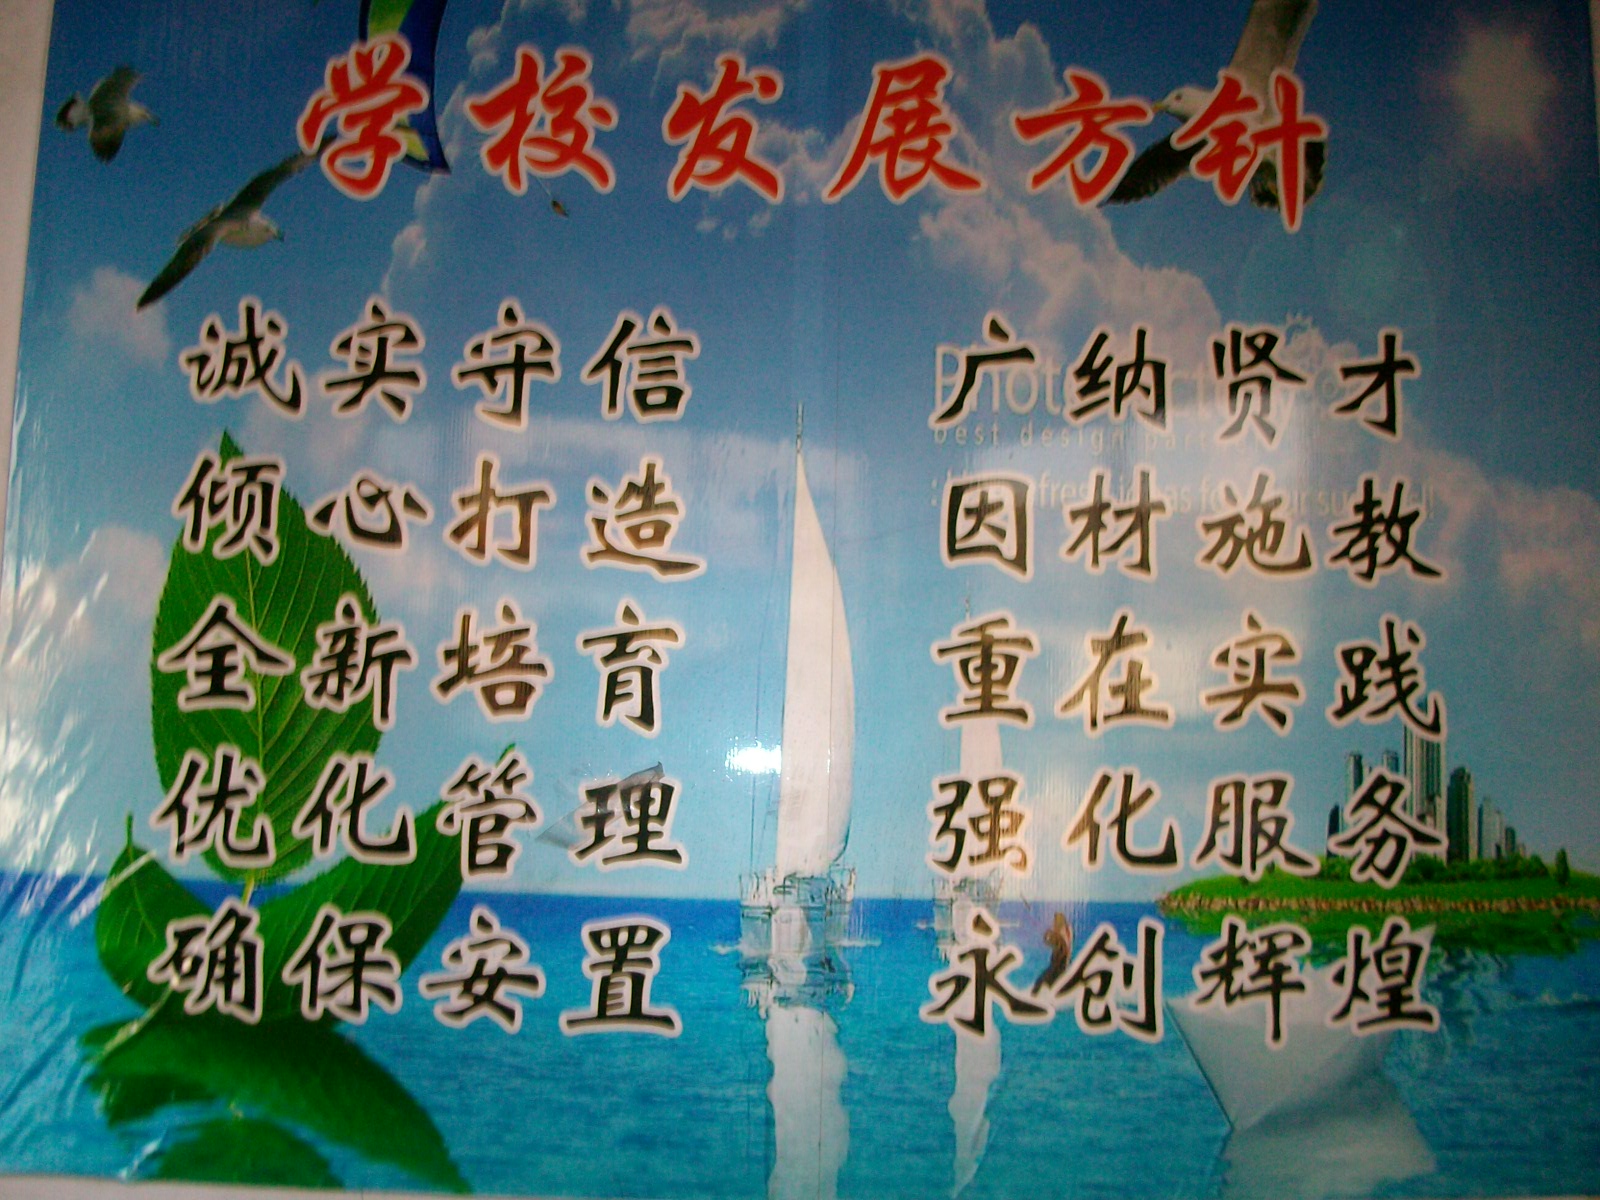 学校发展方针
诚实守信 广纳贤才
倾心打造 因材施教
全新培育 重在实践
优化管理 强化服务
确保安置 永创辉煌
best design part